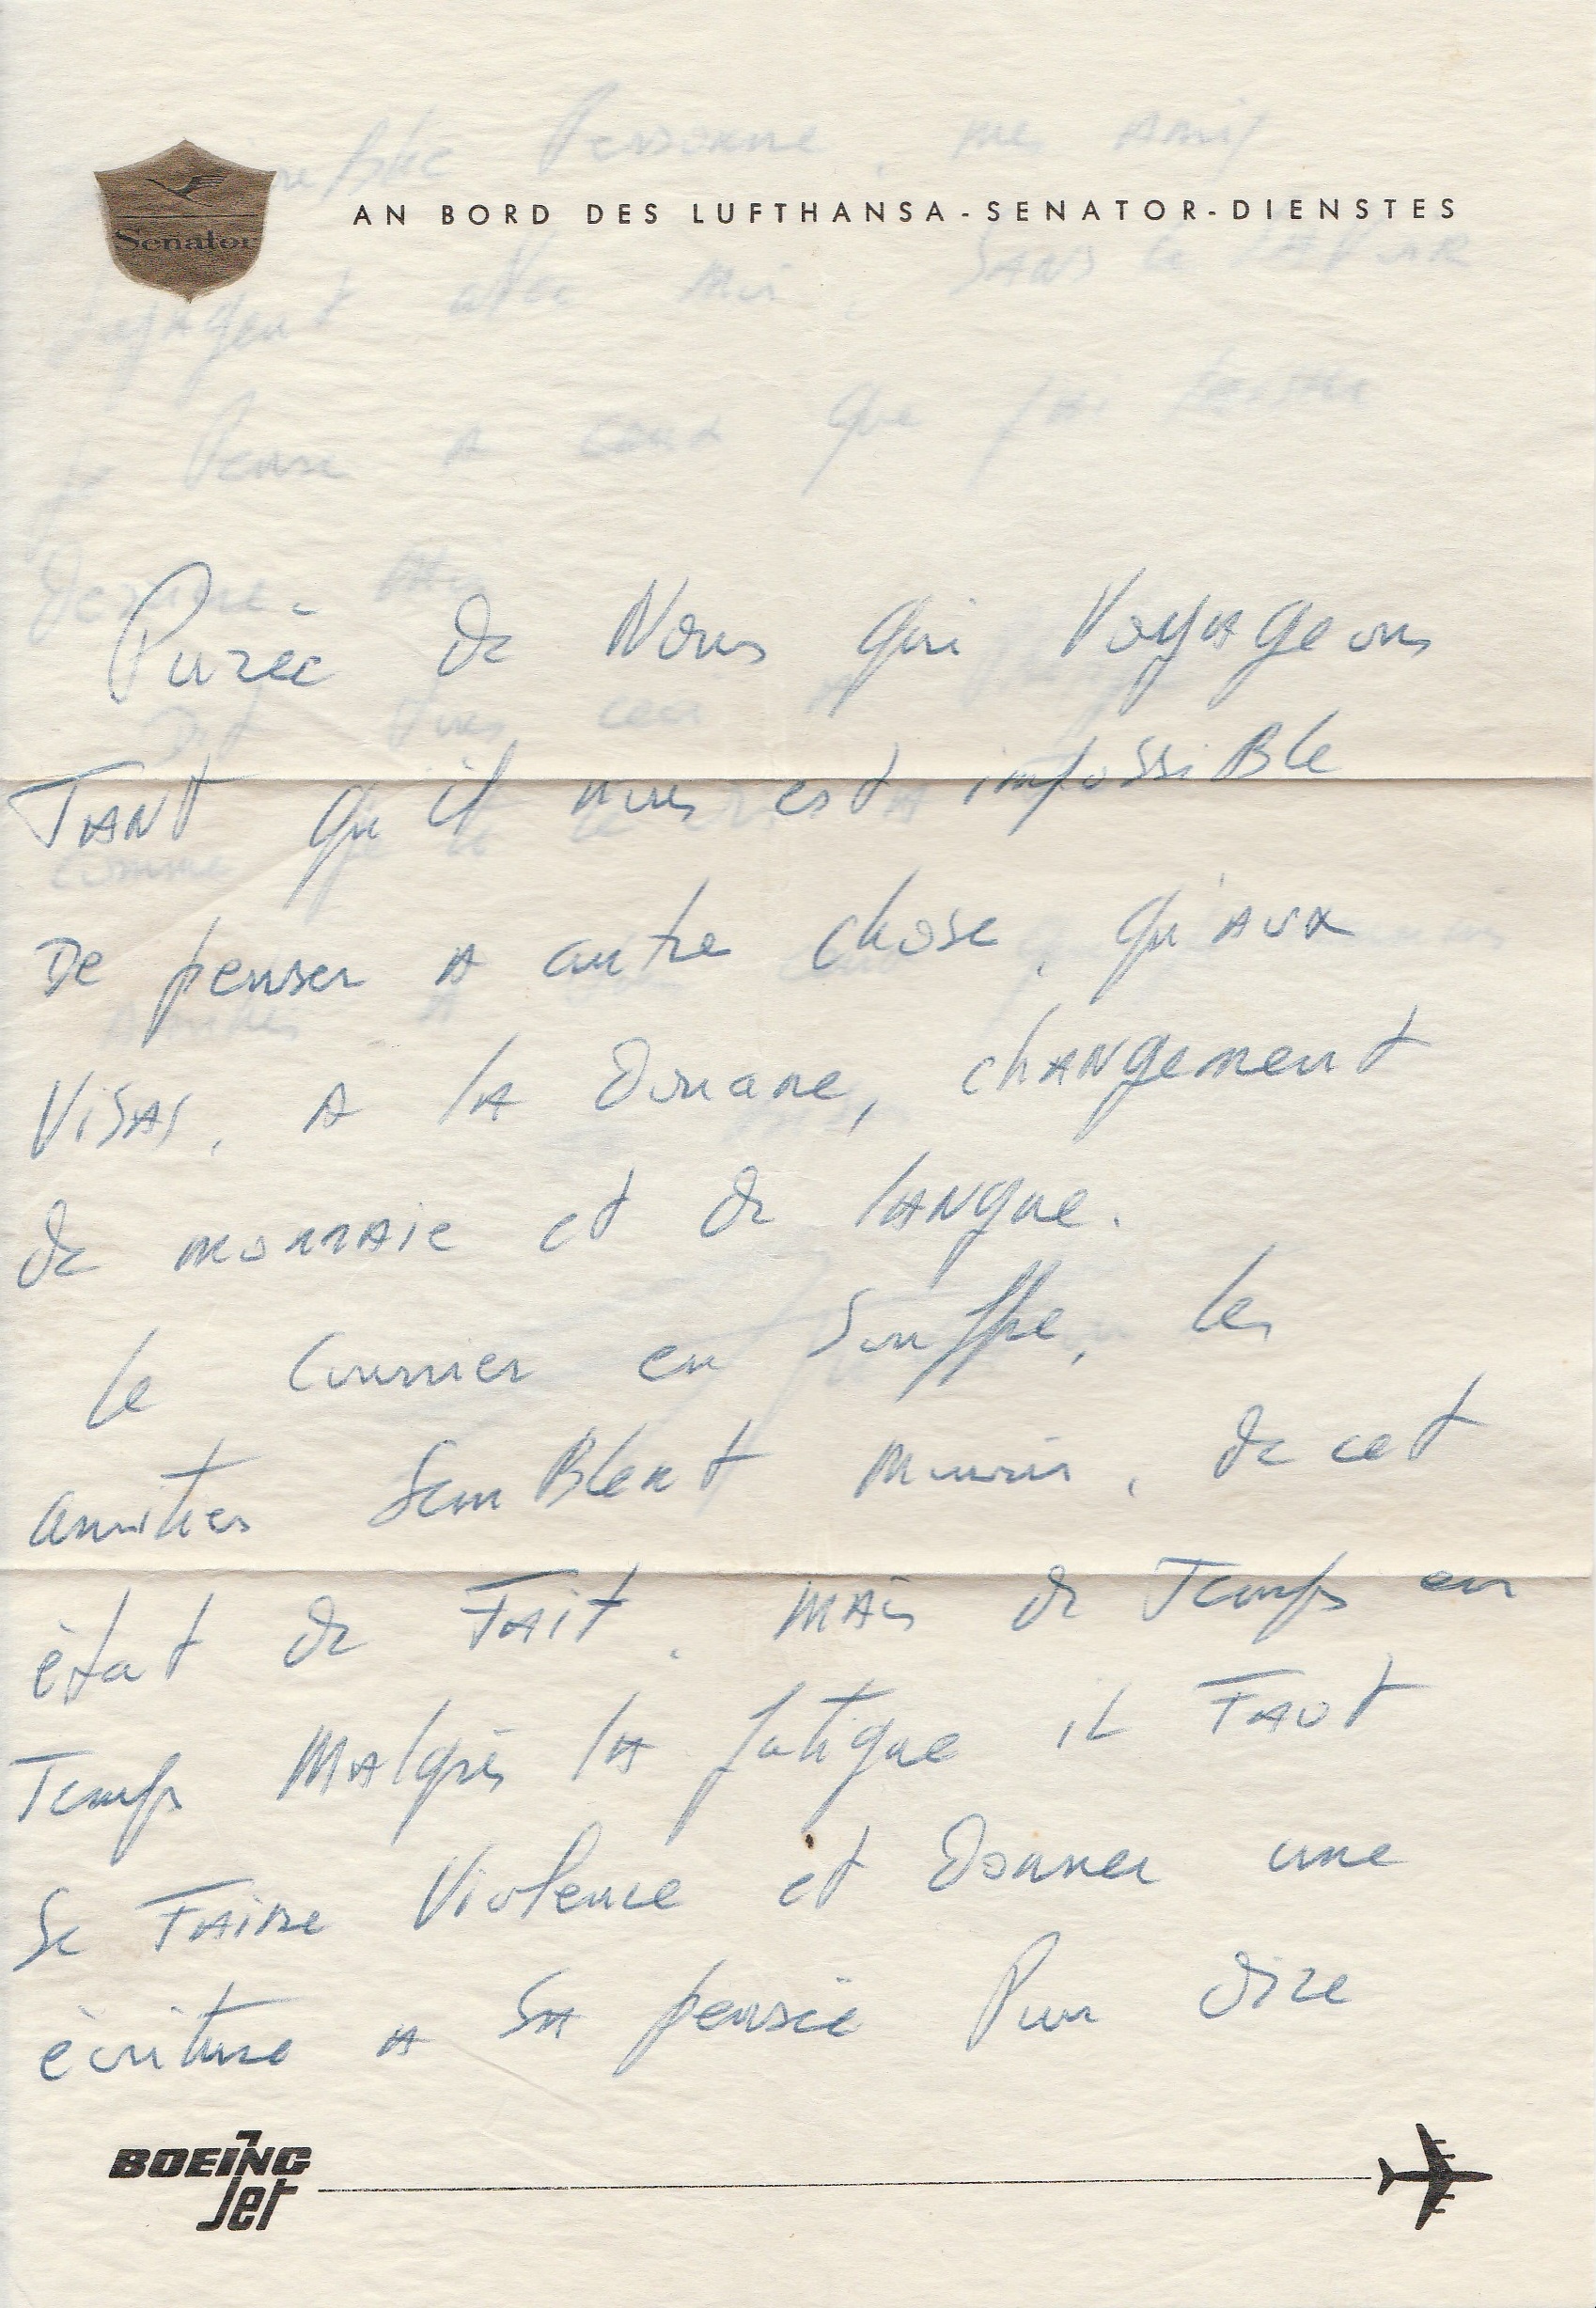 Senator
AN BORD DES LUFTHANSA-SENATOR-DIENSTES
Purée de Nous qui Voyageons
TANT qu'il nous est impossible
De penser A autre chose, qu'AUX
VISAS, A lA Douane, chANgement
de monnAie et de lANgue.
le Courrier en Souffre, les
amitiés SemBlent Mourir, de cet
état de FAit. MAis de Temps en
Temps MAlgrés lA fatigue iL FAUT
Se FAire Violence et Donner une
écriture A SA pensée Pour dire
BOEING
Jet